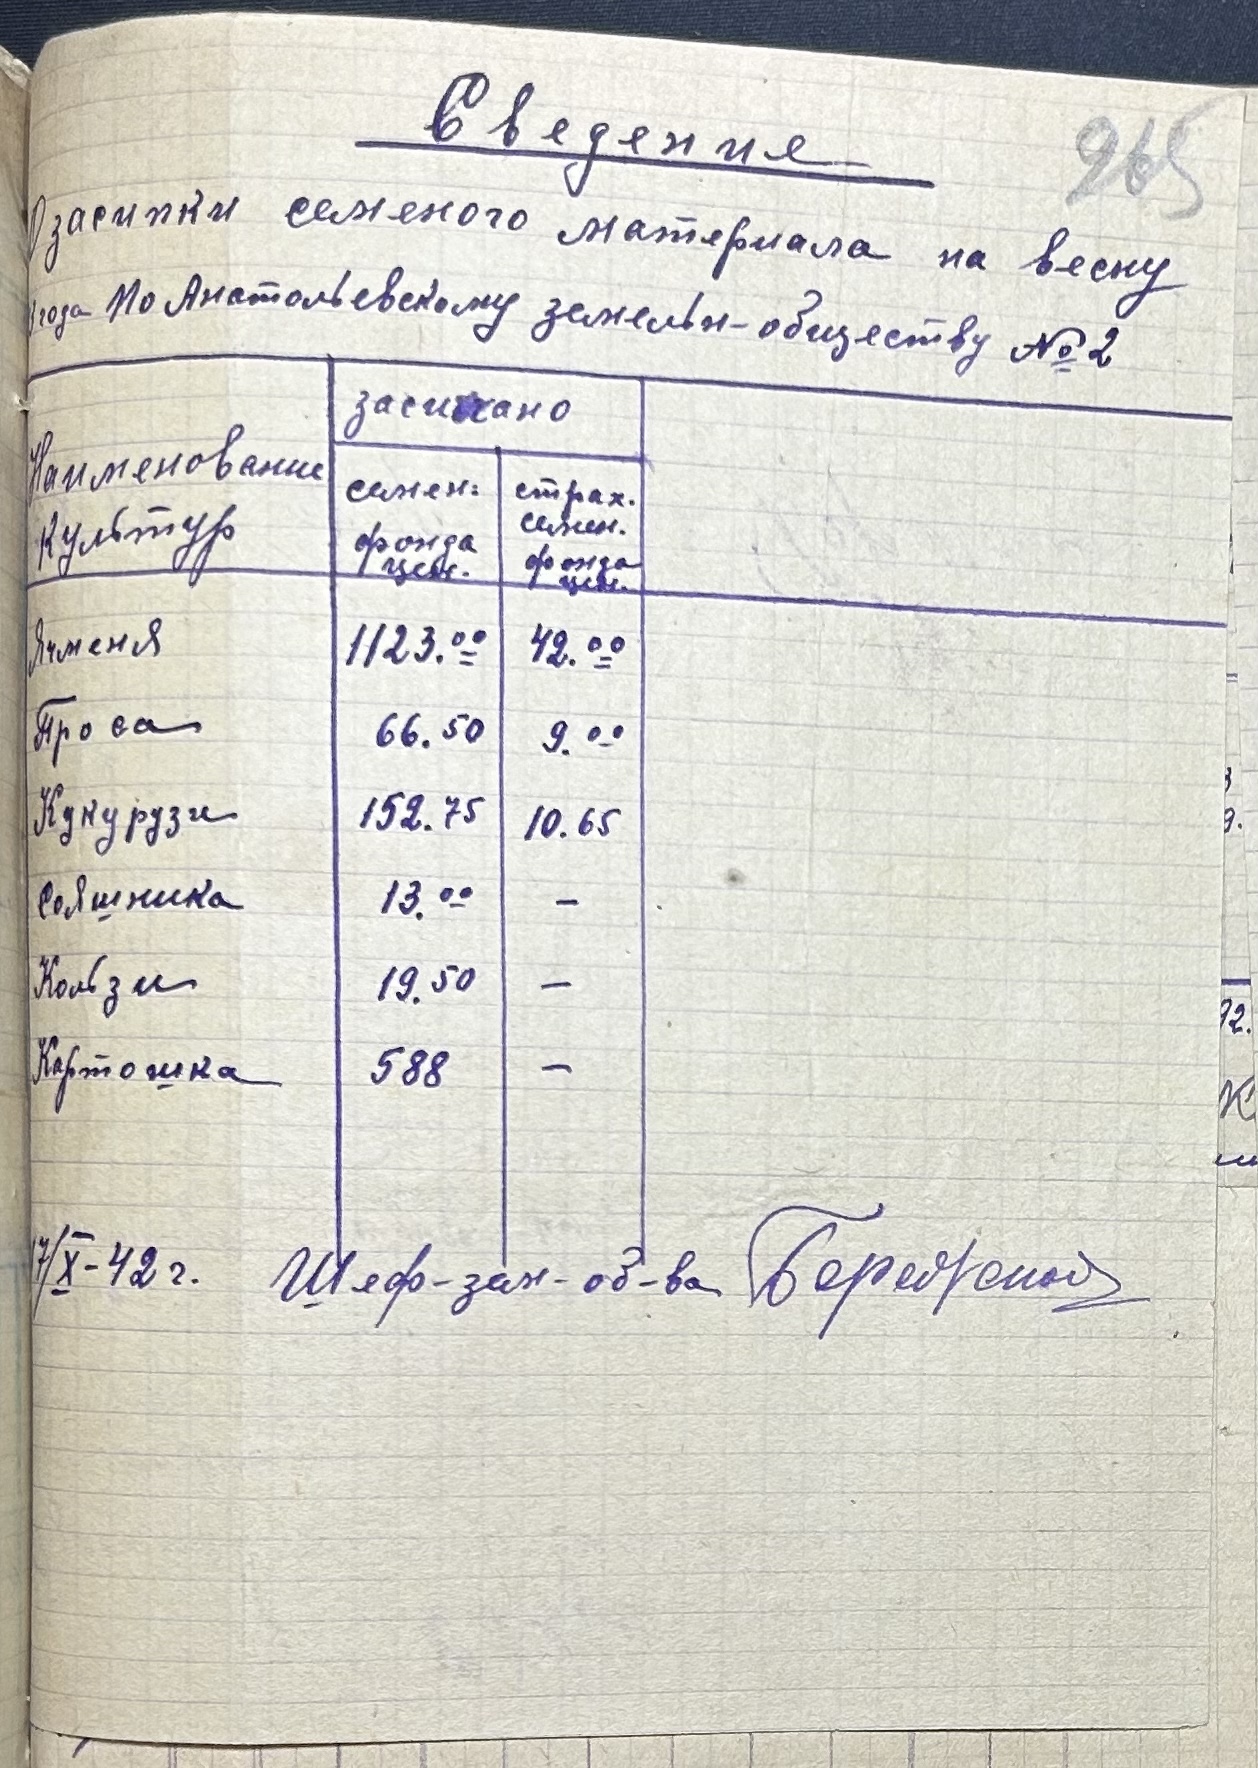 Сведение
265
О засипки семеного материала на весну
года По Анатольевскому земельн-обществу № 2
Наименование культур
засипано
семен: фонда цен.
страх. семен. фонда цен.
Ячменя 1123.00 42.00
Проса 66.50 9.00
Кукурузи 152.75 10.65
Сояшника 13.00 –
Кользи 19.50 –
Картошка 588 –
17/X-42 г. Шеф-зем-об-ва